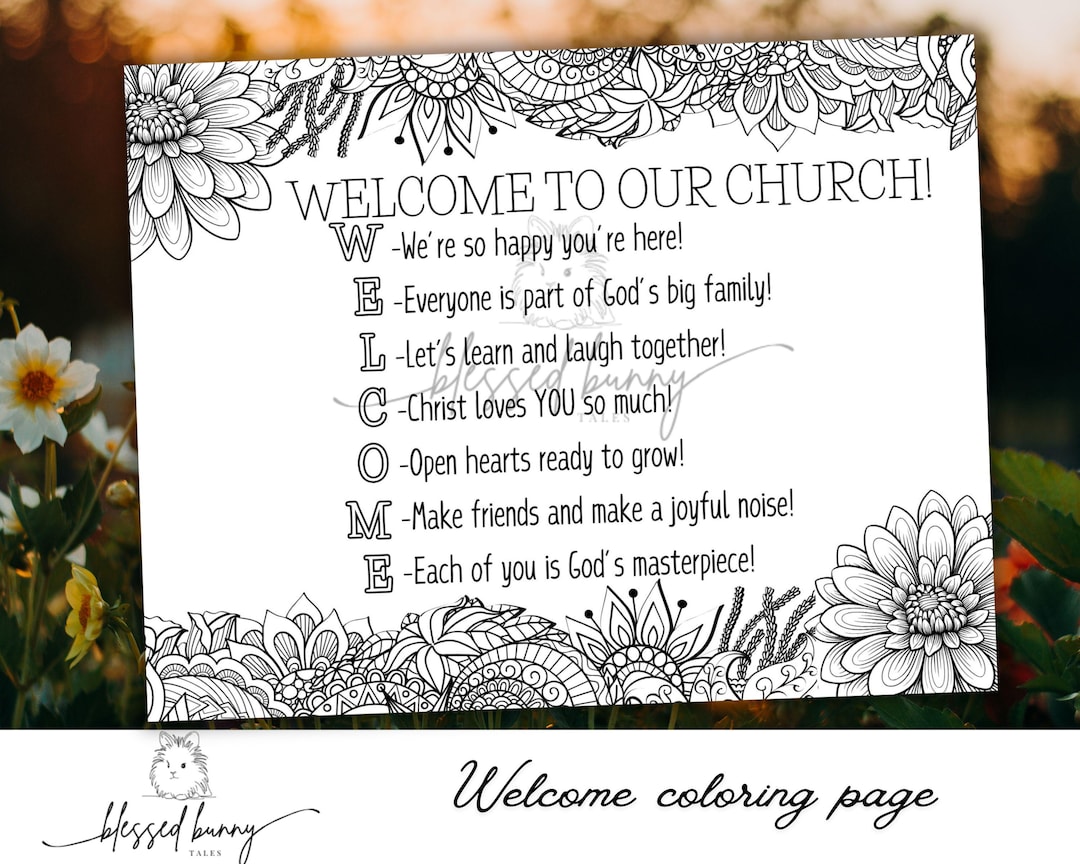 WELCOME TO OUR CHURCH!
W -We're so happy you're here!
E -Everyone is part of God's big family!
L -Let's learn and laugh together!
C -Christ loves YOU so much!
O -Open hearts ready to grow!
M -Make friends and make a joyful noise!
E -Each of you is God's masterpiece!
blessed bunny
TALES
blessed bunny
TALES
Welcome coloring page